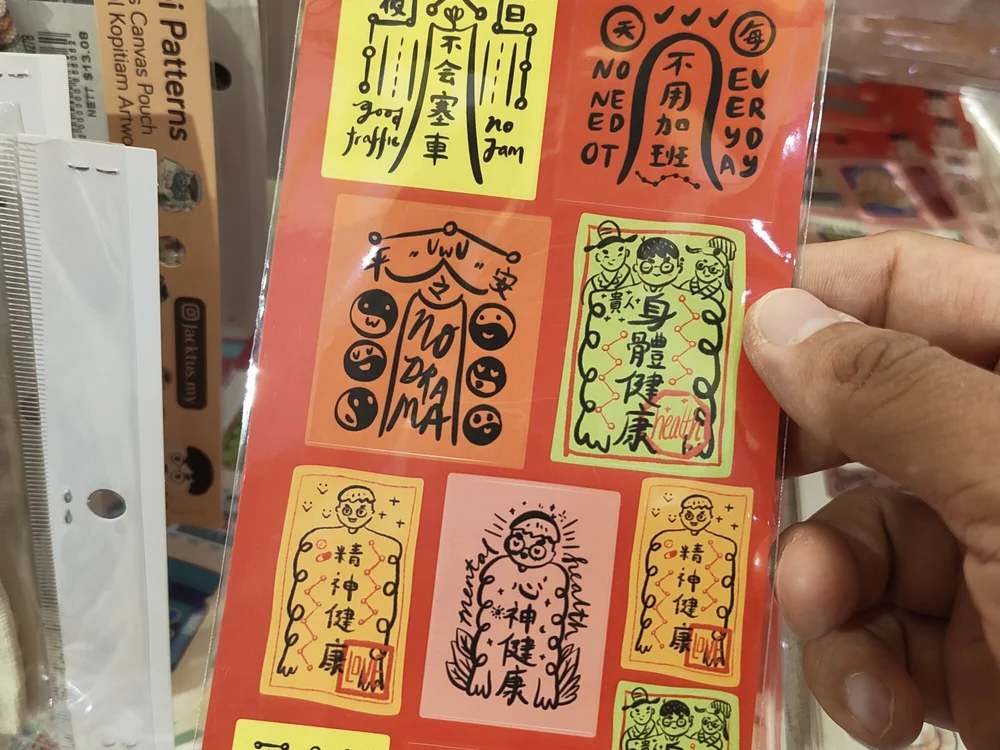 i Patterns
s Canvas Pouch
l Kopitiam Artwo
NETT $13.08
jacktus.my
不会塞車
good
traffic
no
jam
天
每
NO
NE
ED
OT
不用加班
EV
ER
YD
AY
平
"UwU"
安
之
NO
DRA
MA
貴人
身體健康
health
精神健康
LOVE
mental
心神健康
health
精神健康
LOVE
貴人
身